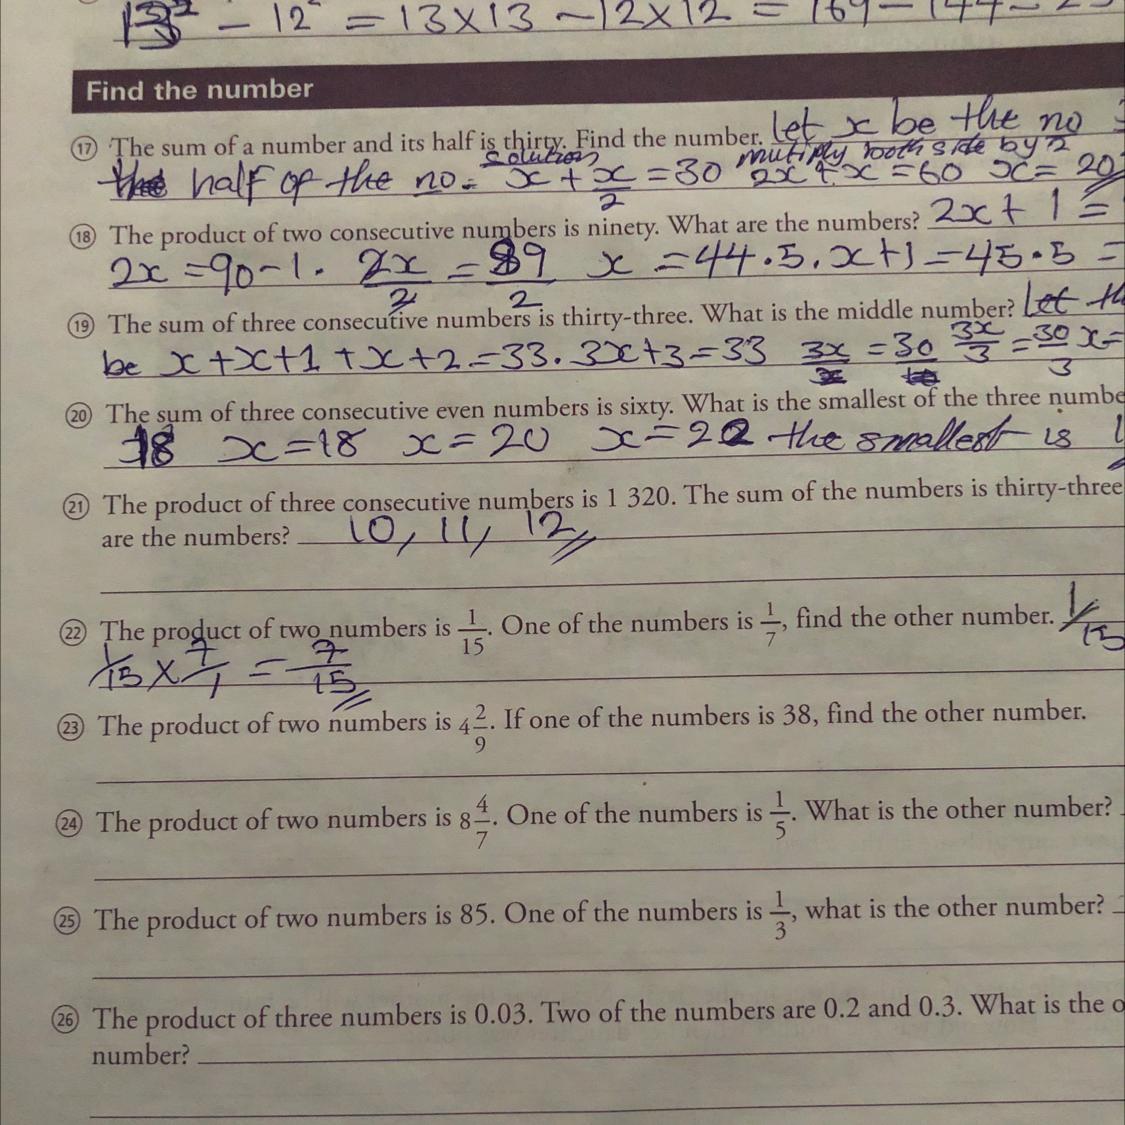 13² - 12² = 13 x 13 - 12 x 12 = 169 - 144 = 25
Find the number
17 The sum of a number and its half is thirty. Find the number. Let x be the no
half of the no. solution x + x/2 = 30 multiply both side by 2 2x + x = 60 x = 20
18 The product of two consecutive numbers is ninety. What are the numbers? 2x + 1 =
2x = 90 - 1. 2x/2 = 89/2 x = 44.5. x + 1 = 45.5 =
19 The sum of three consecutive numbers is thirty-three. What is the middle number? Let
be x + x + 1 + x + 2 = 33. 3x + 3 = 33 3x = 30 3x/3 = 30/3 x =
20 The sum of three consecutive even numbers is sixty. What is the smallest of the three numbe
18 x = 18 x = 20 x = 22 the smallest is
21 The product of three consecutive numbers is 1 320. The sum of the numbers is thirty-three
are the numbers? 10, 11, 12
22 The product of two numbers is 1/15. One of the numbers is 1/7, find the other number. 1/15
1/15 x 7/1 = 7/15
23 The product of two numbers is 4 2/9. If one of the numbers is 38, find the other number.
24 The product of two numbers is 8 4/7. One of the numbers is 1/5. What is the other number?
25 The product of two numbers is 85. One of the numbers is 1/3, what is the other number?
26 The product of three numbers is 0.03. Two of the numbers are 0.2 and 0.3. What is the o
number?